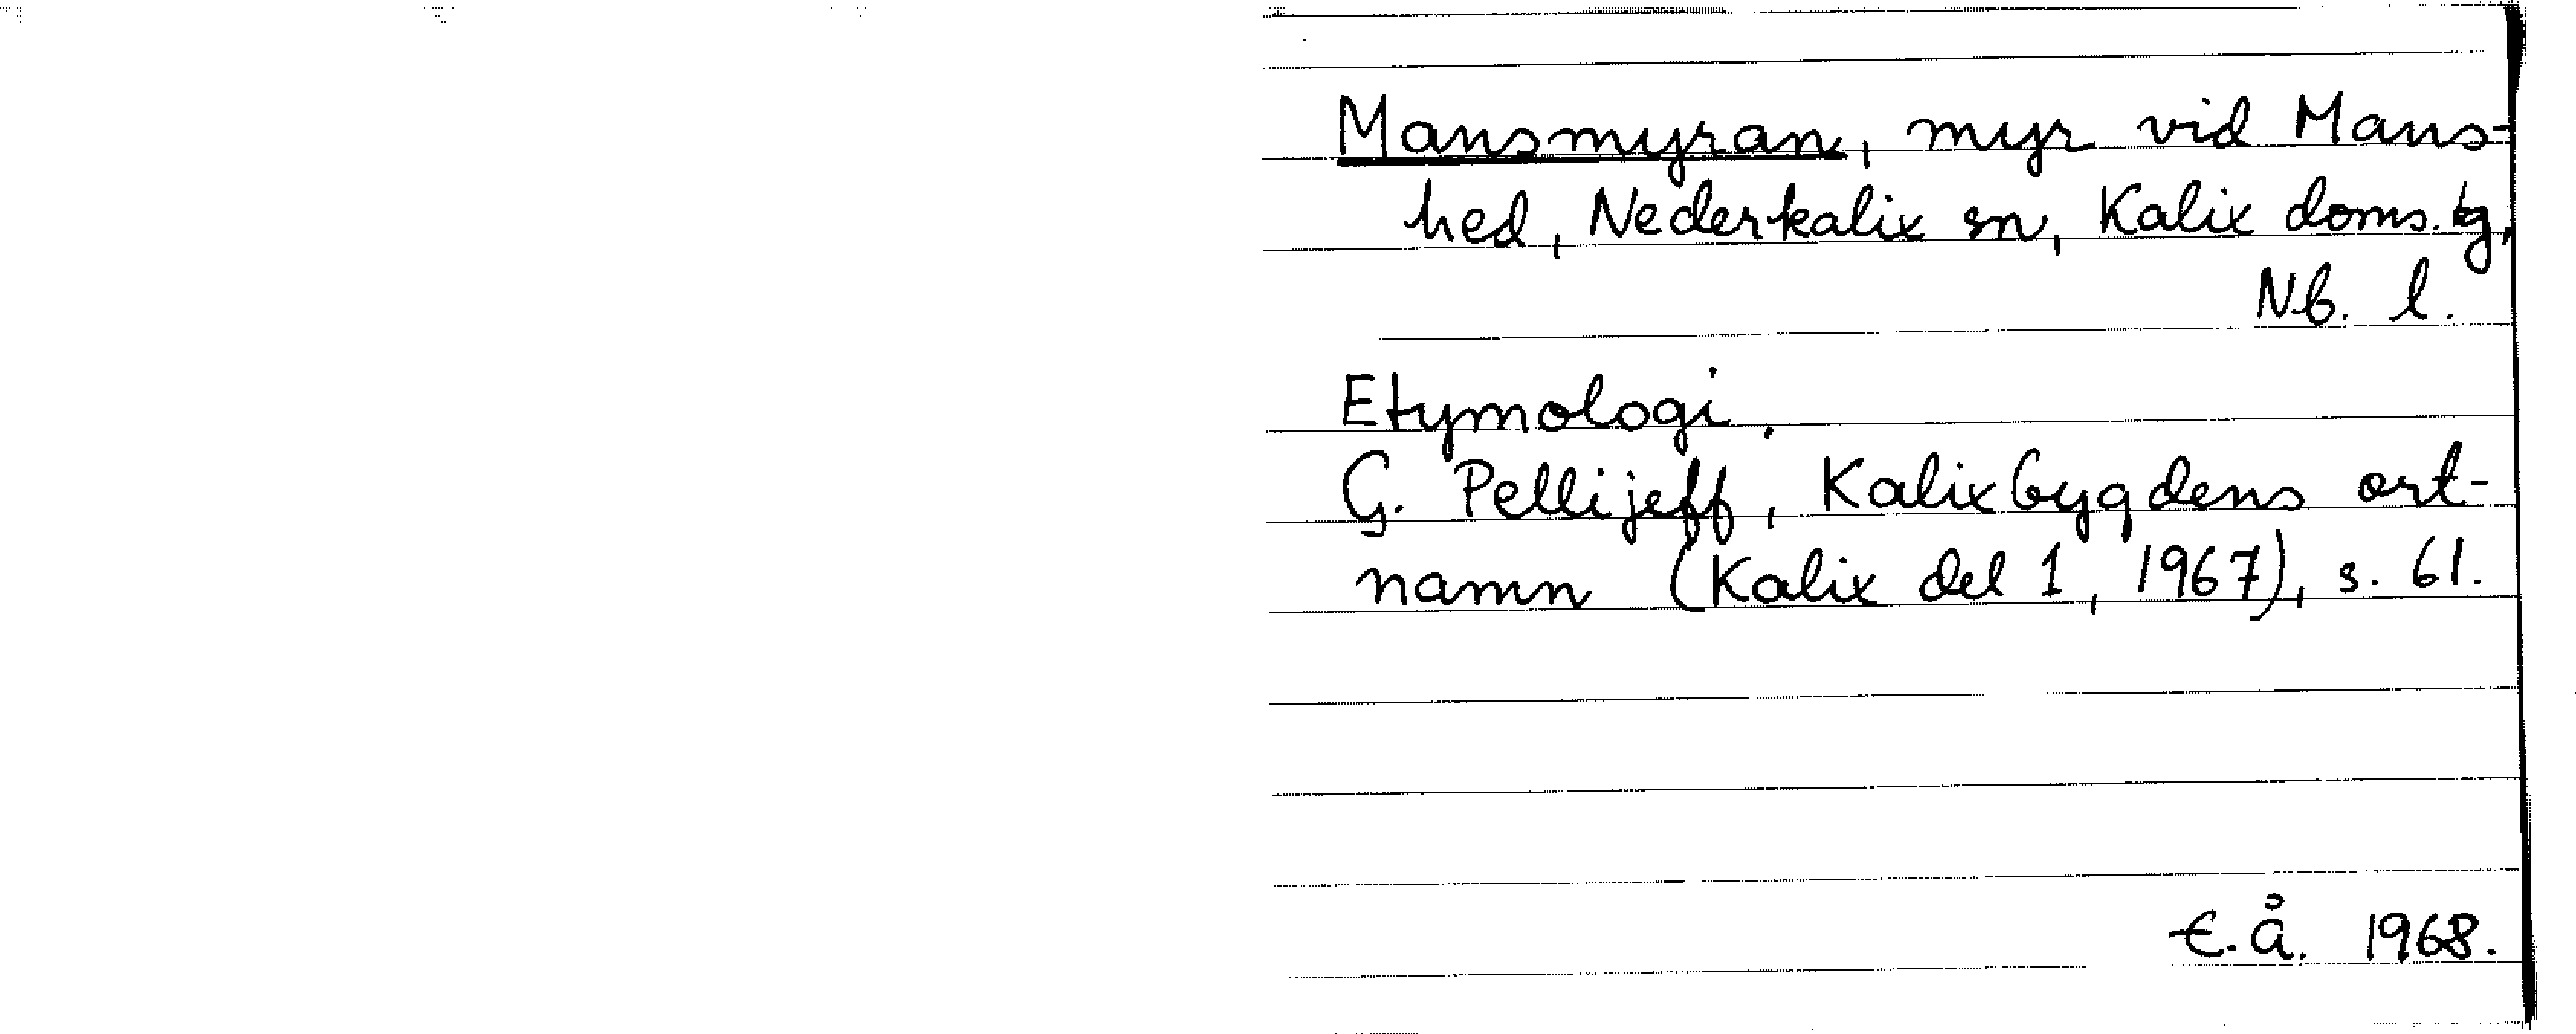 Mansmyran, myr vid Mans-
hed, Nederkalix sn, Kalix doms. tg,
Nb. l.
Etymologi.
G. Pellijeff, Kalixbygdens ort-
namn (Kalix del 1, 1967), s. 61.
E.å. 1968.